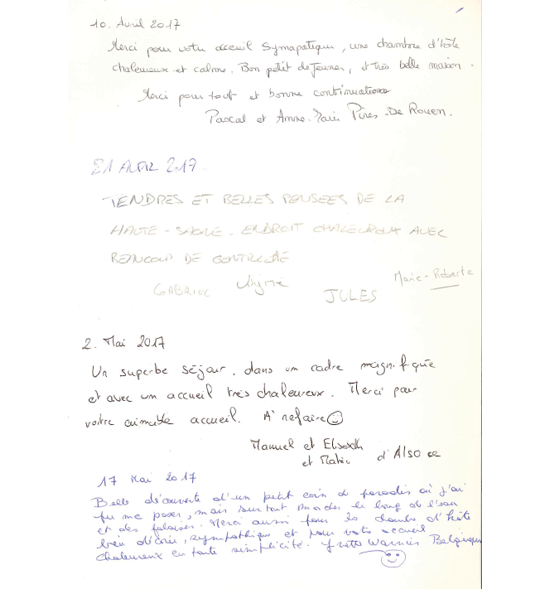 10. Avril 2017
Merci pour votre acceuil Symapatique, une chambre d'hôte
chaleureux et calme. Bon petit dejeuner, et très belle maison.
Merci pour tout et bonne continuations
Pascal et Anne-Marie Pires - De Rouen.
21 AVR 2017
TENDRES ET BELLES PENSEES DE LA
HAUTE - SAONE. ENDROIT CHALEUREUX AVEC
BEAUCOUP DE
GABRIEL
JULES
Marie-Roberte
2. Mai 2017
Un superbe séjour, dans un cadre magnifique
et avec un accueil très chaleureux. Merci pour
votre aimable accueil. A refaire
Manuel et Elisabeth
et d'Alsace
17 Mai 2017
Belle découverte d'un petit coin de paradis où j'ai
pu me poser, mais surtout le long de l'eau
et des falaises. Merci aussi pour la chambre d'hôte
bien décorée, sympathique et pour votre accueil
chaleureux en toute simplicité. Belgique